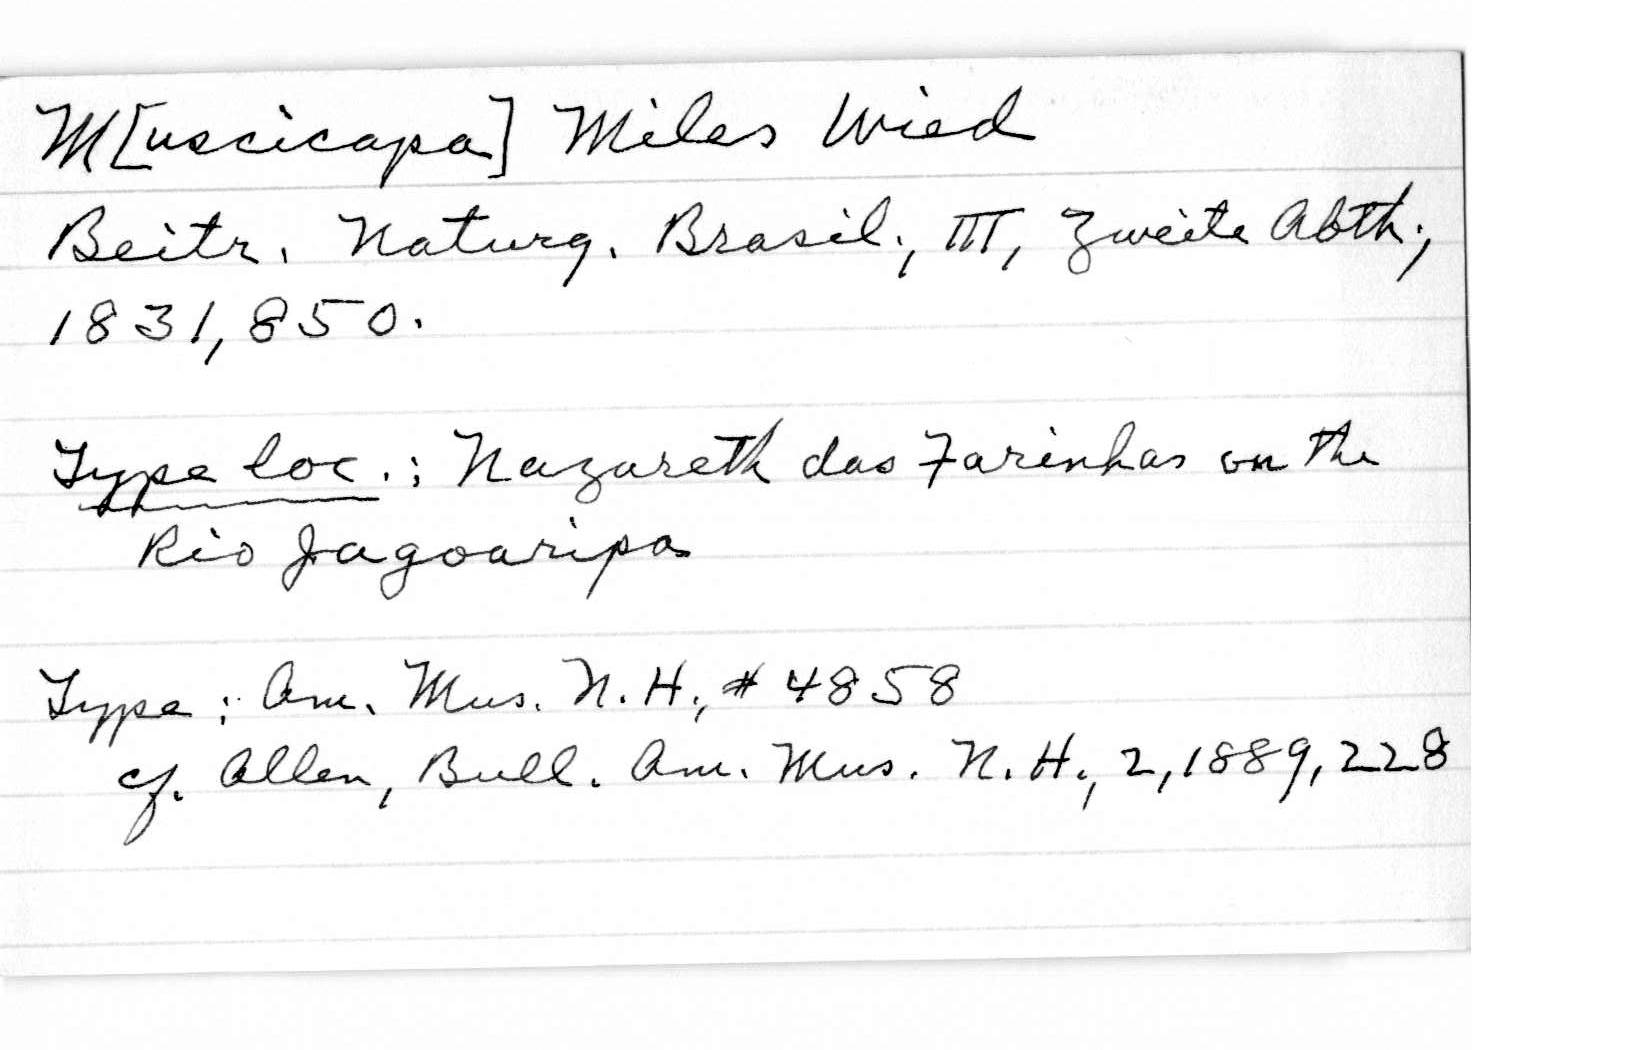 M[uscicapa] Miles Wied
Beitr. Naturg. Brasil., III, Zweite Abth.,
1831, 850.
Type loc.: Nazareth das Farinhas on the
Rio Jagoaripa
Type: Am. Mus. N. H., # 4858
cf. Allen, Bull. Am. Mus. N. H., 2, 1889, 228